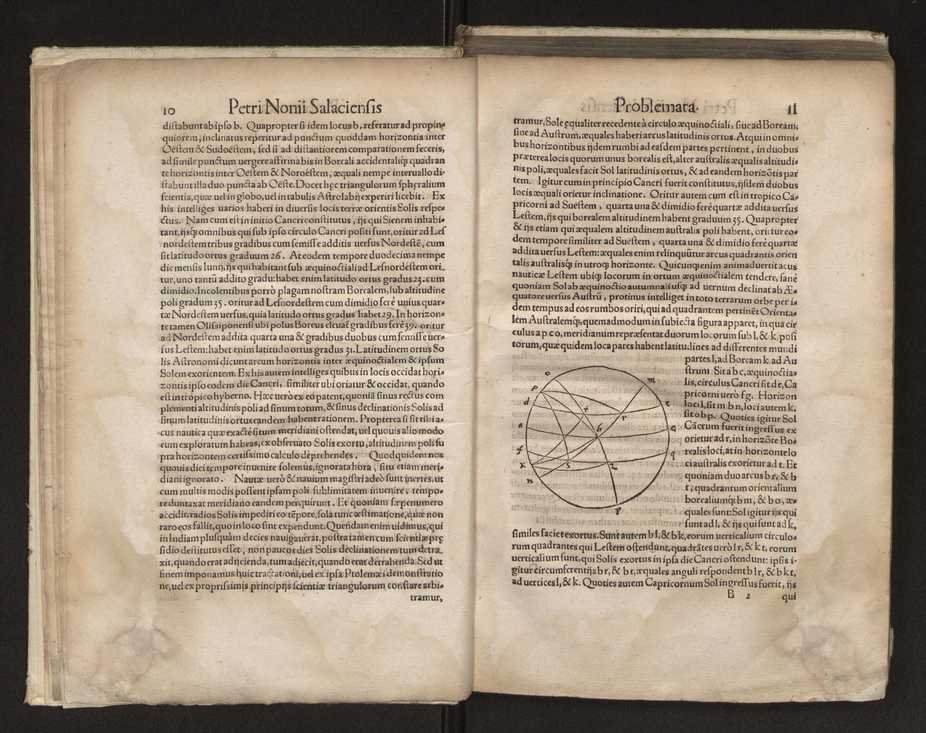 10 Petri Nonii Salaciensis
distabunt ab ipso b. Quapropter si idem locus b, referatur ad propin-
quiorem, inclinatus reperitur ad punctum quoddam horizontis inter
Oestem & Sudoestem, sed si ad distantiorem comparationem feceris,
ad simile punctum uergere affirmabis in Boreali accidentalíq; quadran
te horizontis inter Oestem & Noroestem, æquali nempe interuallo di-
stabunt illa duo puncta ab Oeste. Docet hęc triangulorum sphęralium
scientia, quæ uel in globo, uel in tabulis Astrolabij experiri licebit. Ex
his intelliges uarios haberi in diuersis locis terræ orientis Solis respe-
ctus. Nam cum est in initio Cancri constitutus, ijs qui Sienem inhabi-
tant, ijsq; omnibus qui sub ipso circulo Cancri positi sunt, oritur ad Les
nordestem tribus gradibus cum semisse additis uersus Nordestē, cum
sit latitudo ortus graduum 26. At eodem tempore duodecima nempe
die mensis Iunij, ijs qui habitant sub æquinoctiali ad Lesnordestem ori-
tur, uno tantū addito gradu: habet enim latitudo ortus gradus 23. cum
dimidio. Incolentibus porrò plagam nostram Borealem, sub altitudine
poli graduum 35. oritur ad Lesnordestem cum dimidio ferè unius quar-
tæ Nordestem uersus, quia latitudo ortus gradus habet 29. In horizon-
te tamen Olisiponensi ubi polus Boreus eleuat' gradibus ferè 39. oritur
ad Nordestem addita quarta una & gradibus duobus cum semisse uer-
sus Lestem: habet enim latitudo ortus gradus 31. Latitudinem ortus So
lis Astronomi dicunt arcum horizontis inter æquinoctialem & ipsum
Solem exorientem. Ex his autem intelliges quibus in locis occidat hori-
zontis ipso eodem die Cancri, similiter ubi oriatur & occidat, quando
est in tropico hyberno. Hæc uerò ex eo patent, quoniā sinus rectus com
plementi altitudinis poli ad sinum totum, & sinus declinationis Solis ad
sinum latitudinis ortus eandem habent rationem. Propterea si sit tibi a-
cus nautica quæ exactè situm meridiani ostendat, uel quouis alio modo
eum exploratum habeas, ex obseruato Solis exortu, altitudinem poli su
pra horizontem certissimo calculo deprehendes. Quod quidem nos
quouis diei tempore inuenire solemus, ignorata hora, situ etiam meri-
diani ignorato. Nautæ uerò & nauium magistri adeò sunt inertes, ut
cum multis modis possent ipsam poli sublimitatem inuenire, tempo-
re duntaxat meridiano eandem perquirunt. Et quoniam sæpenumero
accidit, radios Solis impediri eo tēpore, sola tunc æstimatione, quæ non
raro eos fallit, quo in loco sint expendunt. Quendam enim uidimus, qui
in Indiam plusquàm decies nauigauerat, postea tamen cum scientiæ prę
sidio destitutus esset, non paucos dies Solis declinationem tum detra-
xit, quando erat adijcienda, tum adiecit, quando erat detrahenda. Sed ut
finem imponamus huic tractationi, uel ex ipsa Ptolemæi demonstratio
ne, uel ex proprijssimis principijs scientiæ triangulorum constare arbi-
tramur,
Problemata. 11
tramur, Sole equaliter recedente à circulo æquinoctiali, siue ad Boream,
siue ad Austrum, æquales haberi arcus latitudinis ortus. At qui in omni-
bus horizontibus ijdem rumbi ad easdem partes pertinent, in duobus
præterea locis quorum unus borealis est, alter australis æqualis altitudi-
nis poli, æquales facit Sol latitudinis ortus, & ad eandem horizōtis par
tem. Igitur cum in principio Cancri fuerit constitutus, ijsdem duobus
locis æquali orietur inclinatione. Oritur autem cum est in tropico Ca-
pricorni ad Suestem, quarta una & dimidio ferè quartæ addita uersus
Lestem, ijs qui borealem altitudinem habent graduum 35. Quapropter
& ijs etiam qui æqualem altitudinem australis poli habent, oritur eo-
dem tempore similiter ad Suestem, quarta una & dimidio ferè quartæ
addita uersus Lestem: æquales enim relinquūtur arcus quadrantis orien
talis australisq; in utroq; horizonte. Quicunq; enim animaduertit acus
nauticæ Lestem ubiq; locorum in ortum æquinoctialem tendere, sanè
quoniam Sol ab æquinoctio autumnali usq; ad uernum declinat ab Æ-
quatore uersus Austrū, protinus intelliget in toto terrarum orbe per i-
dem tempus ad eos rumbos oriri, qui ad quadrantem pertinēt Orienta-
lem Australemq;, quemadmodum in subiecta figura apparet, in qua cir
culus a p c o, meridianum repræsentat duorum locorum sub l, & k. posi
torum, quæ quidem loca pares habent latitudines ad differentes mundi
partes l, ad Boream k. ad Au
strum. Sit a b c, æquinoctia-
lis, circulus Cancri sit d e, Ca
pricorni uerò f g. Horizon
loci l, sit m b n, loci autem k,
sit o b p. Quoties igitur Sol
Cācrum fuerit ingressus ex
orietur ad r, in horizōte Bo-
realis loci, at in horizonte lo
ci australis exorietur ad t. Et
quoniam duo arcus b r, & b
t, quadrantum orientalium
borealiumq; b m, & b o, æ-
quales sunt: Sol igitur ijs qui
sunt ad l, & ijs qui sunt ad k,
similes faciet exortus. Sunt autem b l, & b k, eorum uerticalium circulo-
rum quadrantes qui Lestem ostendunt, quadrātes uerò l r, & k t, eorum
uerticalium sunt, qui Solis exortus in ipsa die Cancri ostendunt: ipsis i-
gitur circumferentijs b r, & b t, æquales anguli respondent b l r, & b k t,
ad uertices l, & k. Quoties autem Capricornum Sol ingressus fuerit, ijs
B 2 qui